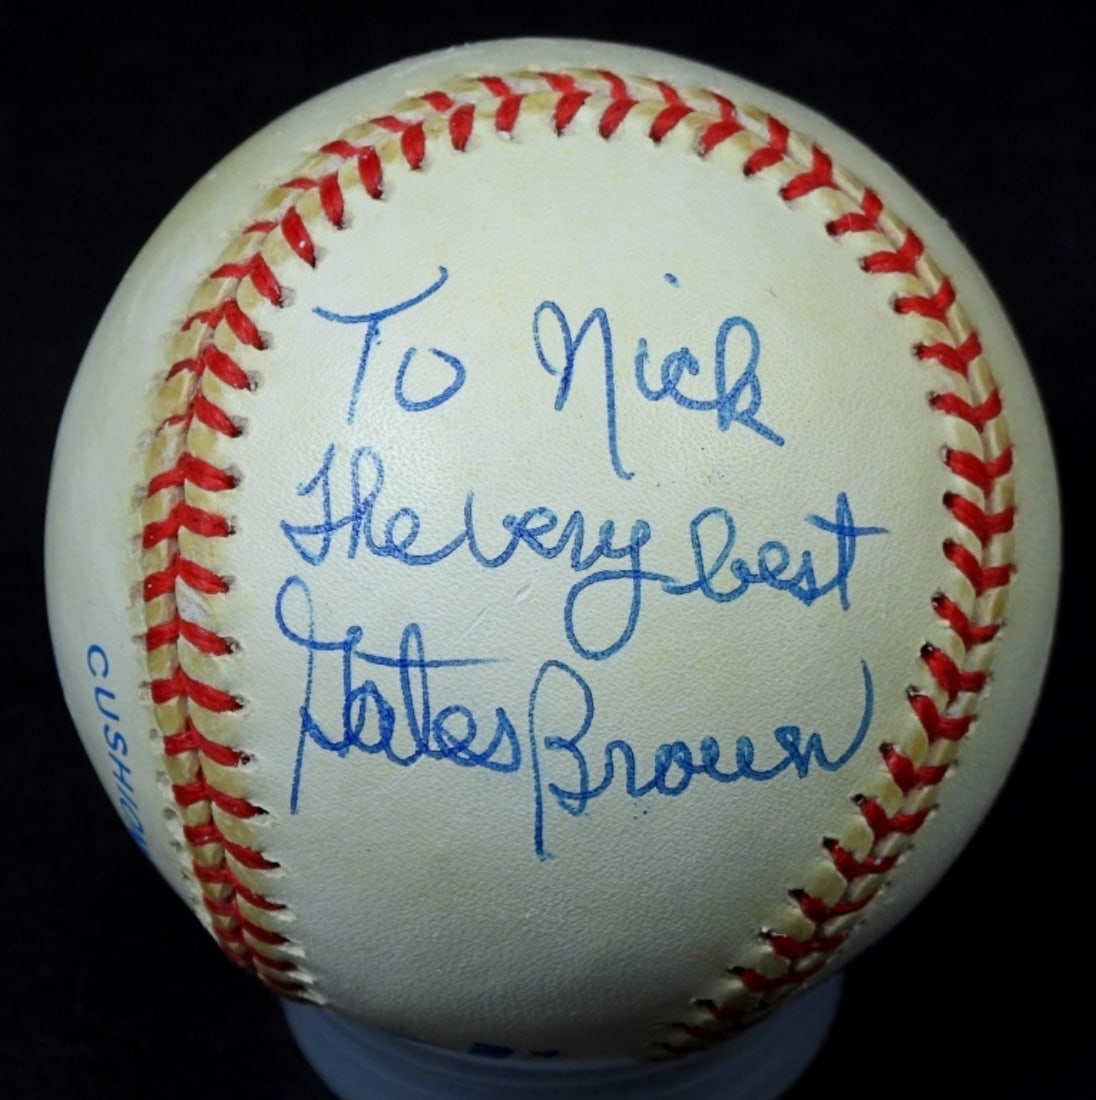 To Nick
The very best
Gates Brown
CUSHION